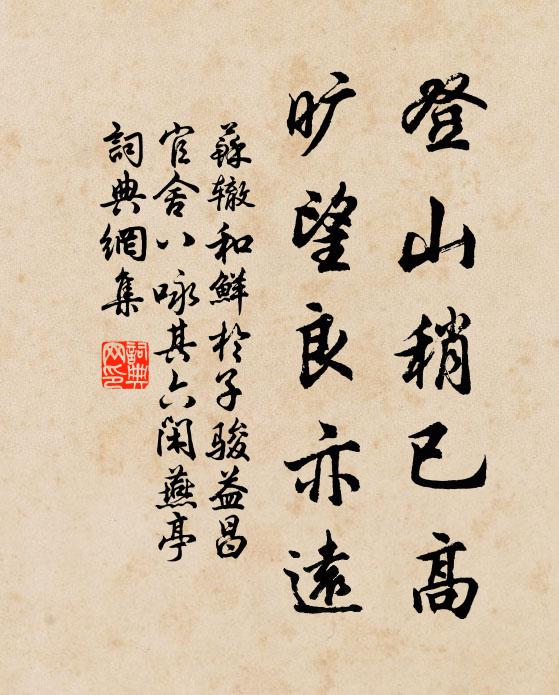 登山稍已高
旷望良亦遠
蘇辙和鮮於子駿益昌
官舍八咏其六閑燕亭
詞典網集
詞典网印